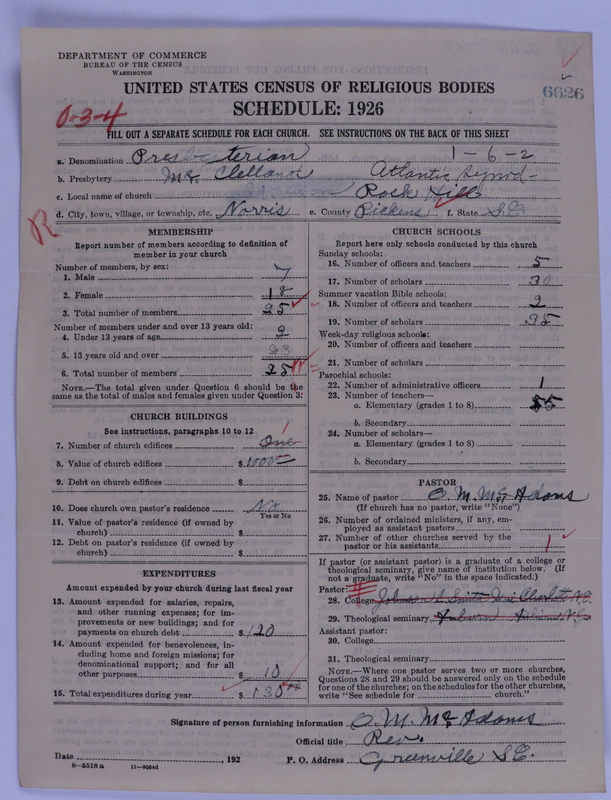 DEPARTMENT OF COMMERCE
BUREAU OF THE CENSUS
WASHINGTON
UNITED STATES CENSUS OF RELIGIOUS BODIES
SCHEDULE: 1926
6626
0-3-4
FILL OUT A SEPARATE SCHEDULE FOR EACH CHURCH. SEE INSTRUCTIONS ON THE BACK OF THIS SHEET
1-6-2
a. Denomination Presbyterian
b. Presbytery McClelland Atlantic Synod-
c. Local name of church Rock Hill
d. City, town, village, or township, etc. Norris e. County Pickens f. State S.C.
R
MEMBERSHIP
Report number of members according to definition of member in your church
Number of members, by sex:
1. Male 7
2. Female 18
3. Total number of members 25
Number of members under and over 13 years old:
4. Under 13 years of age 2
5. 13 years old and over 23
6. Total number of members 25
NOTE.—The total given under Question 6 should be the
same as the total of males and females given under Question 3.
CHURCH BUILDINGS
See instructions, paragraphs 10 to 12
7. Number of church edifices One
8. Value of church edifices $ 1000
9. Debt on church edifices $
10. Does church own pastor's residence No
Yes or No
11. Value of pastor's residence (if owned by
church) $
12. Debt on pastor's residence (if owned by
church) $
EXPENDITURES
Amount expended by your church during last fiscal year
13. Amount expended for salaries, repairs,
and other running expenses; for im-
provements or new buildings; and for
payments on church debt $ 120
14. Amount expended for benevolences, in-
cluding home and foreign missions; for
denominational support; and for all
other purposes $ 10
15. Total expenditures during year $ 130
CHURCH SCHOOLS
Report here only schools conducted by this church
Sunday schools:
16. Number of officers and teachers 5
17. Number of scholars 30
Summer vacation Bible schools:
18. Number of officers and teachers 2
19. Number of scholars 35
Week-day religious schools:
20. Number of officers and teachers
21. Number of scholars
Parochial schools:
22. Number of administrative officers 1
23. Number of teachers—
a. Elementary (grades 1 to 8) 5
b. Secondary
24. Number of scholars—
a. Elementary (grades 1 to 8)
b. Secondary
PASTOR
25. Name of pastor O. M. McAdams
(If church has no pastor, write "None")
26. Number of ordained ministers, if any, em-
ployed as assistant pastors
27. Number of other churches served by the
pastor or his assistants 1
If pastor (or assistant pastor) is a graduate of a college or
theological seminary, give name of institution below. (If
not a graduate, write "No" in the space indicated.)
Pastor:
28. College Johnson C. Smith Uni. Charlotte N.C.
29. Theological seminary Auburn
Assistant pastor:
30. College
31. Theological seminary
NOTE.—Where one pastor serves two or more churches,
Questions 28 and 29 should be answered only on the schedule
for one of the churches; on the schedules for the other churches,
write "See schedule for church."
Signature of person furnishing information O. M. McAdams
Official title Rev.
Date , 192 P. O. Address Greenville S.C.
8-5518 a